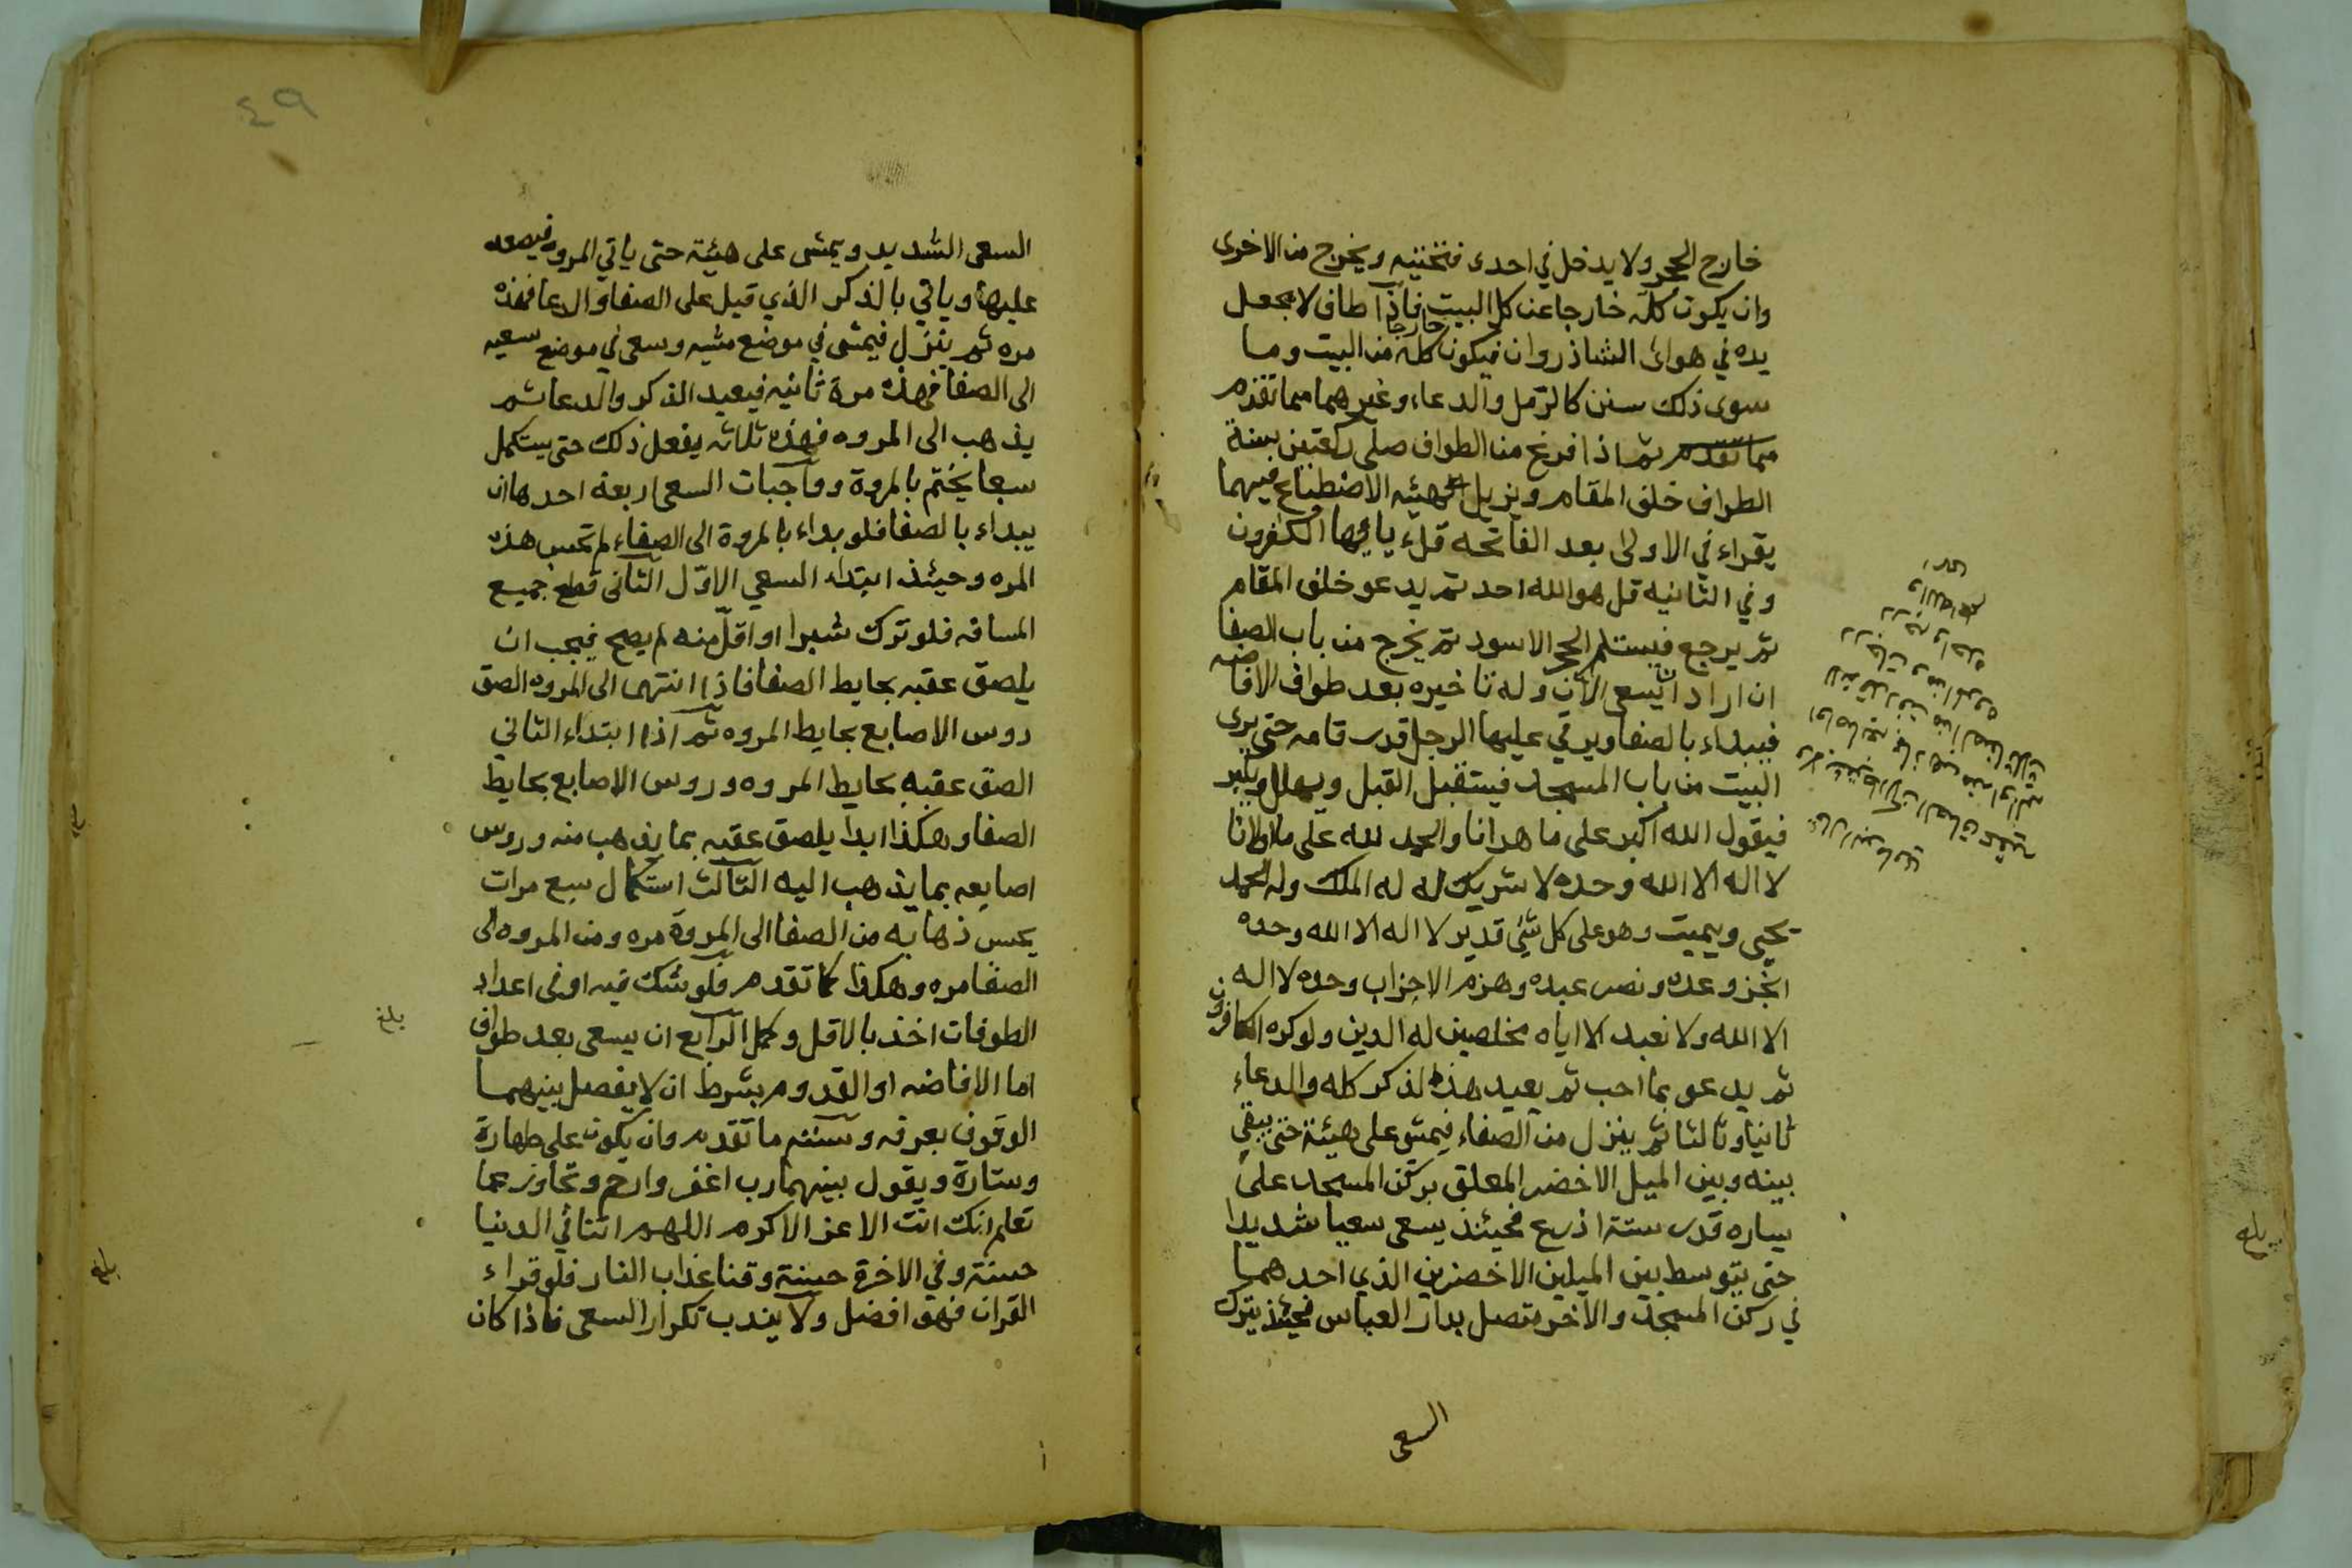 خارج الحجر ولا يدخل في احدى فتحتيه ويخرج من الاخرى
وان يكون كله خارجا عن كل البيت فاذا طاف لا يجعل
يده في هواى الشاذروان فيكون كله خارجا من البيت وما
سوى ذلك سنن كالرمل والدعاء وغيرهما مما تقدم
مما تقدم ثم اذا فرغ من الطواف صلى ركعتين بسنة
الطواف خلف المقام ويزيل هيئه الاضطباع فيهما
يقراء في الاولى بعد الفاتحه قل يايها الكفرون
وفي الثانيه قل هو الله احد ثم يدعو خلف المقام
ثم يرجع فيستلم الحجر الاسود ثم يخرج من باب الصفا
ان اراد ان يسعى الان وله تاخيره بعد طواف الافاضه
فيبداء بالصفا ويرقي عليها الرجل قدر قامه حتى يرى
البيت من باب المسجد فيستقبل القبل ويهلل ويكبر
فيقول الله اكبر على ما هدانا والحمد لله على ما اولانا
لا اله الا الله وحده لا شريك له له الملك وله الحمد
يحيى ويميت وهو على كل شيئ قدير لا اله الا الله وحده
انجز وعده ونصر عبده وهزم الاحزاب وحده لا اله
الا الله ولا نعبد الا اياه مخلصين له الدين ولو كره الكافرون
ثم يدعو بما احب ثم يعيد هذا الذكر كله والدعاء
ثانيا وثالثا ثم ينزل من الصفاء فيمشي على هيئة حتى يبقى
بينه وبين الميل الاخضر المعلق بركن المسجد على
يساره قدر ستة اذرع فحيئذ يسعى سعيا شديدا
حتى يتوسط بين الميلين الاخضرين الذي احدهما
في ركن المسجد والاخر متصل بدار العباس فحيئذ يترك
السعى
٤٩
السعى الشديد ويمشى على هيئة حتى ياتي المروه فيصعد
عليها وياتي بالذكر الذي قيل على الصفا والدعا فهذه
مره ثم ينزل فيمشى في موضع مشيه وسعى في موضع سعيه
الى الصفا فهذه مرة ثانيه فيعيد الذكر والدعا ثم
يذهب الى المروه فهذه ثلاثه يفعل ذلك حتى يستكمل
سبعا يختم بالمروة وواجبات السعى اربعه احدها ان
يبداء بالصفا فلو بداء بالمروة الى الصفاء لم تحسب هذه
المره وحيئذ ابتداء السعي الاول الثانى قطع جميع
المسافه فلو ترك شبرا او اقل منه لم يصح فيجب ان
يلصق عقبه بحايط الصفا فاذا انتهى الى المروه الصق
روس الاصابع بحايط المروه ثم اذا ابتداء الثاني
الصق عقبه بحايط المروه وروس الاصابع بحايط
الصفا وهكذا ابدا يلصق عقبه بما يذهب منه وروس
اصابعه بما يذهب اليه الثالث استكمال سبع مرات
يحسب ذهابه من الصفا الى المروة مره ومن المروه الى
الصفا مره وهكذا كما تقدم فلو شك فيه او فى اعداد
الطوفات اخذ بالاقل وكمل الرابع ان يسعى بعد طواف
اما الافاضه او القدوم بشرط ان لا يفصل بينهما
الوقوف بعرفه وسننه ما تقدم وان يكون على طهارة
وستارة ويقول بينهما رب اغفر وارحم وتجاوز عما
تعلم انك انت الاعز الاكرم اللهم اتنا في الدنيا
حسنة وفي الاخرة حسنة وقنا عذاب النار فلو قراء
القران فهو افضل ولا يندب تكرار السعى فاذا كان
بلغ